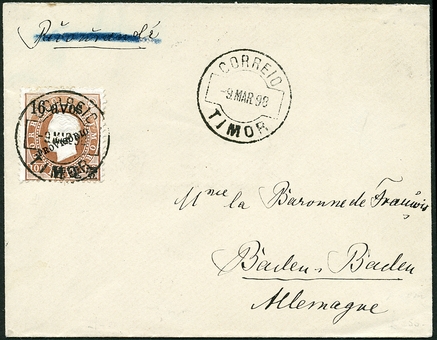 CORREIO
9 MAR 98
TIMOR
16 AVOS
CORREIO
PROVISORIO
TIMOR
Mme la Baronne de
Baden-Baden
Allemagne